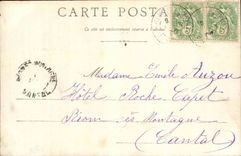 CARTE POSTA
Ce côté est exclusivement réservé à l'adresse
Madame Emile d'Auzon
Hôtel Roche Capet
Riom ès Montagne
(Cantal)
CANTAL